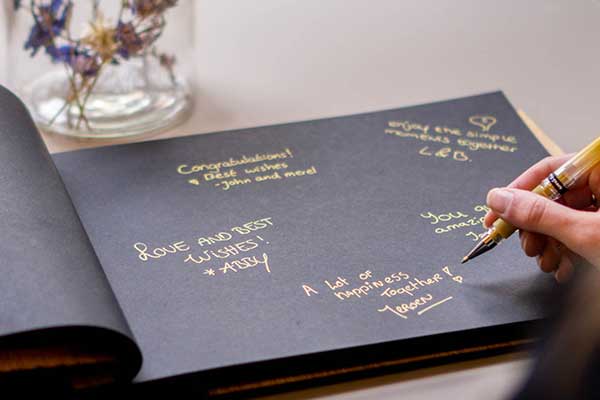 Congratulations!
& Best wishes
-John and merel
enjoy the simple
moments together
L&B.
LOVE AND BEST
WISHES!
* ABBY
You
A LOT OF
happiness
Together!
JEROEN